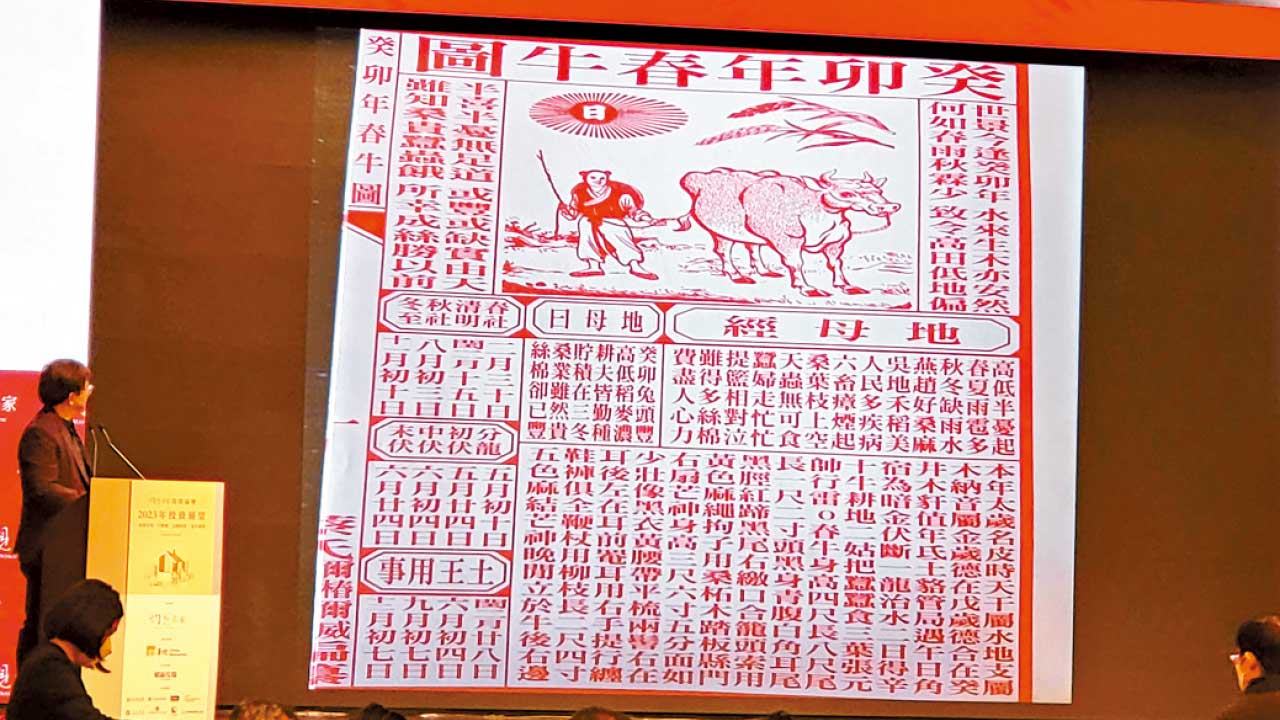 癸卯年春牛圖
癸卯年春牛圖
世景今逢癸卯年 水來生木亦安然
何如春雨秋霖少 致令高田低地偏
日
半喜半憂無足道 或豐或缺實由天
難知桑貴蠶蟲餓 所幸成絲勝以前
地母經
高低半憂起
春夏雨雹多
秋冬缺雨水
燕趙好桑麻
吳地禾稻美
人民多疾病
六畜瘴煙起
桑葉枝上空
天蟲無可食
蠶婦走忙忙
提籃相對泣
雖得多絲棉
費盡人心力
地母曰
癸卯兔頭豐
高低稻麥濃
耕夫皆勤種
貯積在三冬
桑業雖然貴
絲棉卻已豐
春社 清明 秋社 冬至
二月三十日
閏二月十五日
八月初三日
十一月初十日
分龍 初伏 中伏 末伏
五月初十日
五月廿四日
六月初四日
六月廿四日
土王用事
閏二廿八日
六月初四日
九月初七日
十二月初七日
本年太歲名皮時天干屬水地支屬
木納音屬金歲德在戊歲德合在癸
井木豸值年氐土貉管局遇午日角
宿為暗金伏斷一龍治水二日得辛
十牛耕地二姑把蠶蠶食三葉張元
帥行雷○春牛身高四尺長八尺尾
長一尺二寸頭黑身青腹白角耳尾
黑脛紅蹄黑尾右繳口合籠頭索用
黃色麻繩拘子用桑柘木踏板縣門
右扇芒神身高三尺六寸五分面如
少壯像黑衣黃腰帶平梳兩髻右在
耳後左在耳前罨耳用右手提行纏
鞋褲俱全鞭杖用柳枝長二尺四寸
五色麻結芒神晚閒立於牛後右邊
一
家
2023年投資展望